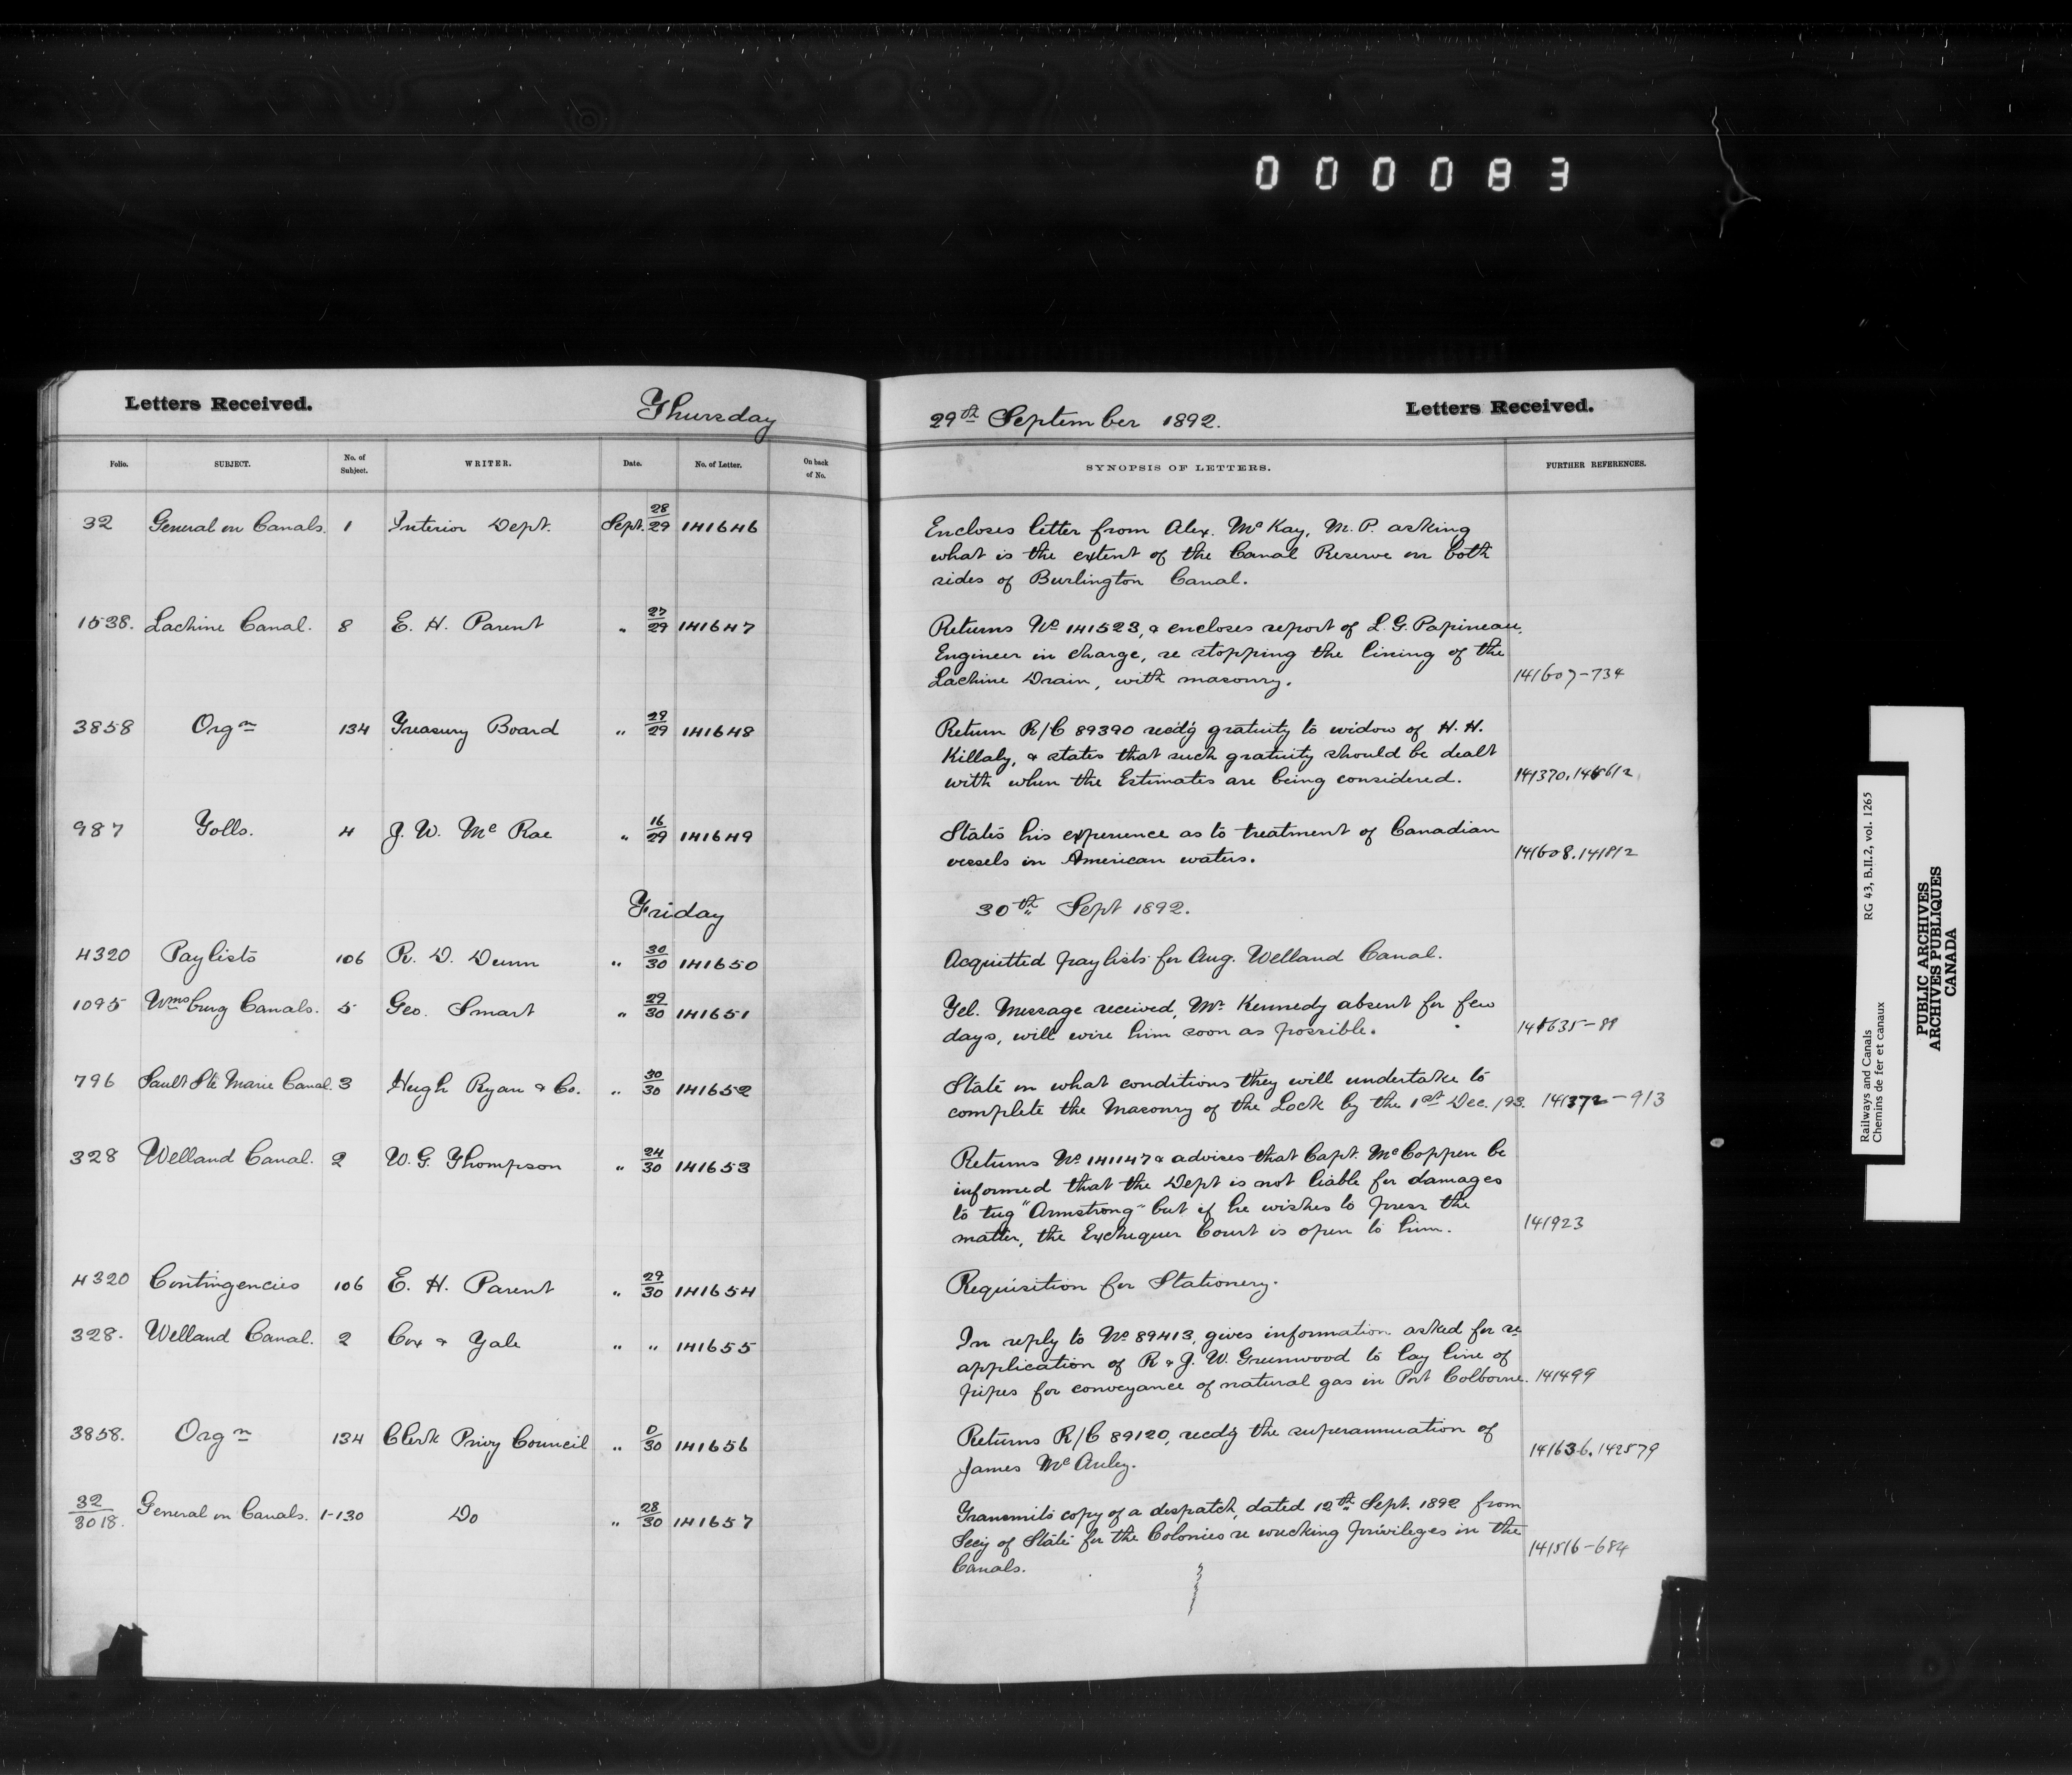 000083
Letters Received.
Thursday
29th September 1892.
Letters Received.
Folio. SUBJECT. No. of Subject. WRITER. Date. No. of Letter. On back of No. SYNOPSIS OF LETTERS. FURTHER REFERENCES.
32 General on Canals. 1 Interior Dept. Sept. 28/29 141646
Encloses letter from Alex. McKay, M.P. asking
what is the extent of the Canal Reserve on both
sides of Burlington Canal.
1538. Lachine Canal. 8 E. H. Parent " 27/29 141647
Returns No 141523, & encloses report of L. G. Papineau,
Engineer in charge, re stopping the lining of the
Lachine Drain, with masonry. 141607-734
3858 Orgn 134 Treasury Board " 29/29 141648
Return R/C 89390 recd'g gratuity to widow of H. H.
Killaly, & states that such gratuity should be dealt
with when the Estimates are being considered. 141370.
987 Tolls. 4 J. W. McRae " 16/29 141649
States his experience as to treatment of Canadian
vessels in American waters. 141608.141812
Friday
30th Sept 1892.
4320 Paylists 106 R. D. Dunn " 30/30 141650
Acquitted paylists for Aug. Welland Canal.
1095 Wmsburg Canals. 5 Geo. Smart " 29/30 141651
Tel. Message received, Mr. Kennedy absent for few
days, will wire him soon as possible. 141635-89
796 Sault Ste Marie Canal. 3 Hugh Ryan & Co. " 30/30 141652
State on what conditions they will undertake to
complete the Masonry of the Lock by the 1st Dec. /93. 141372-913
328 Welland Canal. 2 W. G. Thompson " 24/30 141653
Returns No 141147 & advises that Capt. McCoppen be
informed that the Dept is not liable for damages
to tug "Armstrong" but if he wishes to press the
matter, the Exchequer Court is open to him. 141923
4320 Contingencies 106 E. H. Parent " 29/30 141654
Requisition for Stationery.
328. Welland Canal. 2 Cox & Yale " " 141655
In reply to No 89413, gives information asked for re
application of R & J. W. Greenwood to lay line of
pipes for conveyance of natural gas in Port Colborne. 141499
3858. Orgn 134 Clerk Privy Council " 0/30 141656
Returns R/C 89120, recd'g the superannuation of
James McAuley. 141636.142579
32/3018. General on Canals. 1-130 Do " 28/30 141657
Transmits copy of a despatch, dated 12th Sept. 1892 from
Secy of State for the Colonies re wrecking privileges in the
Canals. 141516-684
Railways and Canals RG 43, B.II.2, vol. 1265
Chemins de fer et canaux
PUBLIC ARCHIVES
ARCHIVES PUBLIQUES
CANADA